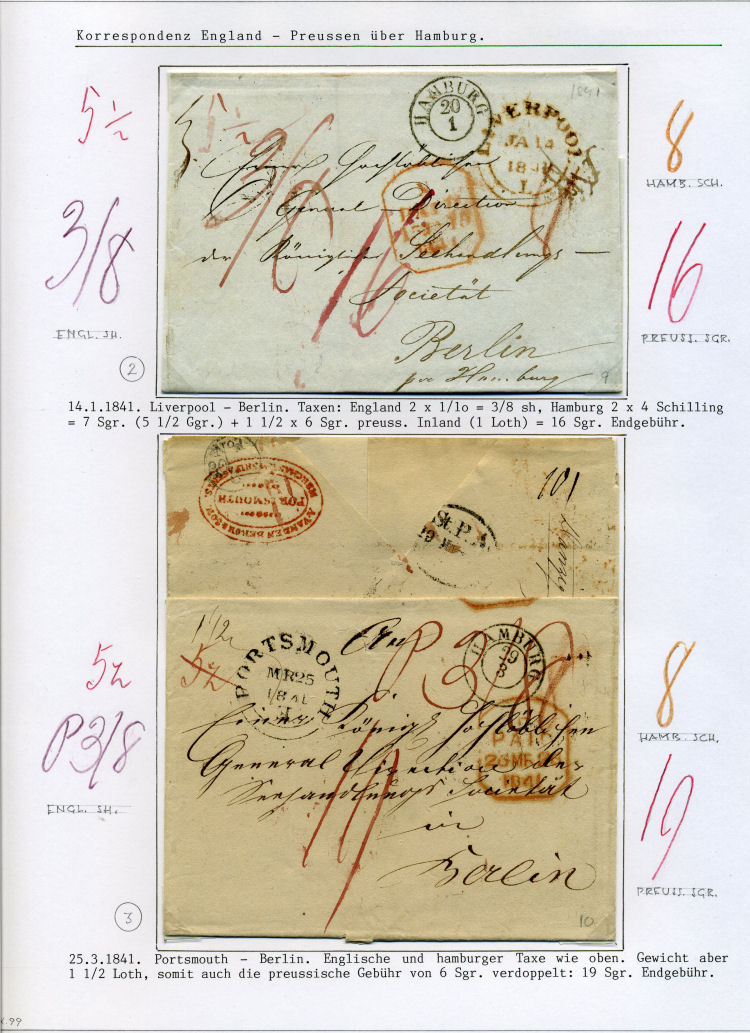 Korrespondenz England - Preussen über Hamburg.
5 ½
3/8
ENGL. SH.
2
8
HAMB. SCH.
16
PREUSS. SGR.
1841
HAMBURG
20
1
LIVERPOOL
JA 14
1841
L
5 ½
3/8
16
8
General Direction
der Königlichen Seehandlungs-
Societät
Berlin
pr Hamburg
9
14.1.1841. Liverpool - Berlin. Taxen: England 2 x 1/1o = 3/8 sh, Hamburg 2 x 4 Schilling
= 7 Sgr. (5 1/2 Ggr.) + 1 1/2 x 6 Sgr. preuss. Inland (1 Loth) = 16 Sgr. Endgebühr.
PORTSMOUTH
St. P. A.
101
5 ½
P 3/8
ENGL. SH.
3
8
HAMB. SCH.
19
PREUSS. SGR.
1 1/2
5 ½
PORTSMOUTH
MR 25
1841
An
P 3/8
HAMBURG
29
3
PAID
26 MR 26
1841
Einer Königl. Hochlöblichen
General Direction der
Seehandlungs Societät
in
Berlin
19
10
25.3.1841. Portsmouth - Berlin. Englische und hamburger Taxe wie oben. Gewicht aber
1 1/2 Loth, somit auch die preussische Gebühr von 6 Sgr. verdoppelt: 19 Sgr. Endgebühr.
X.99